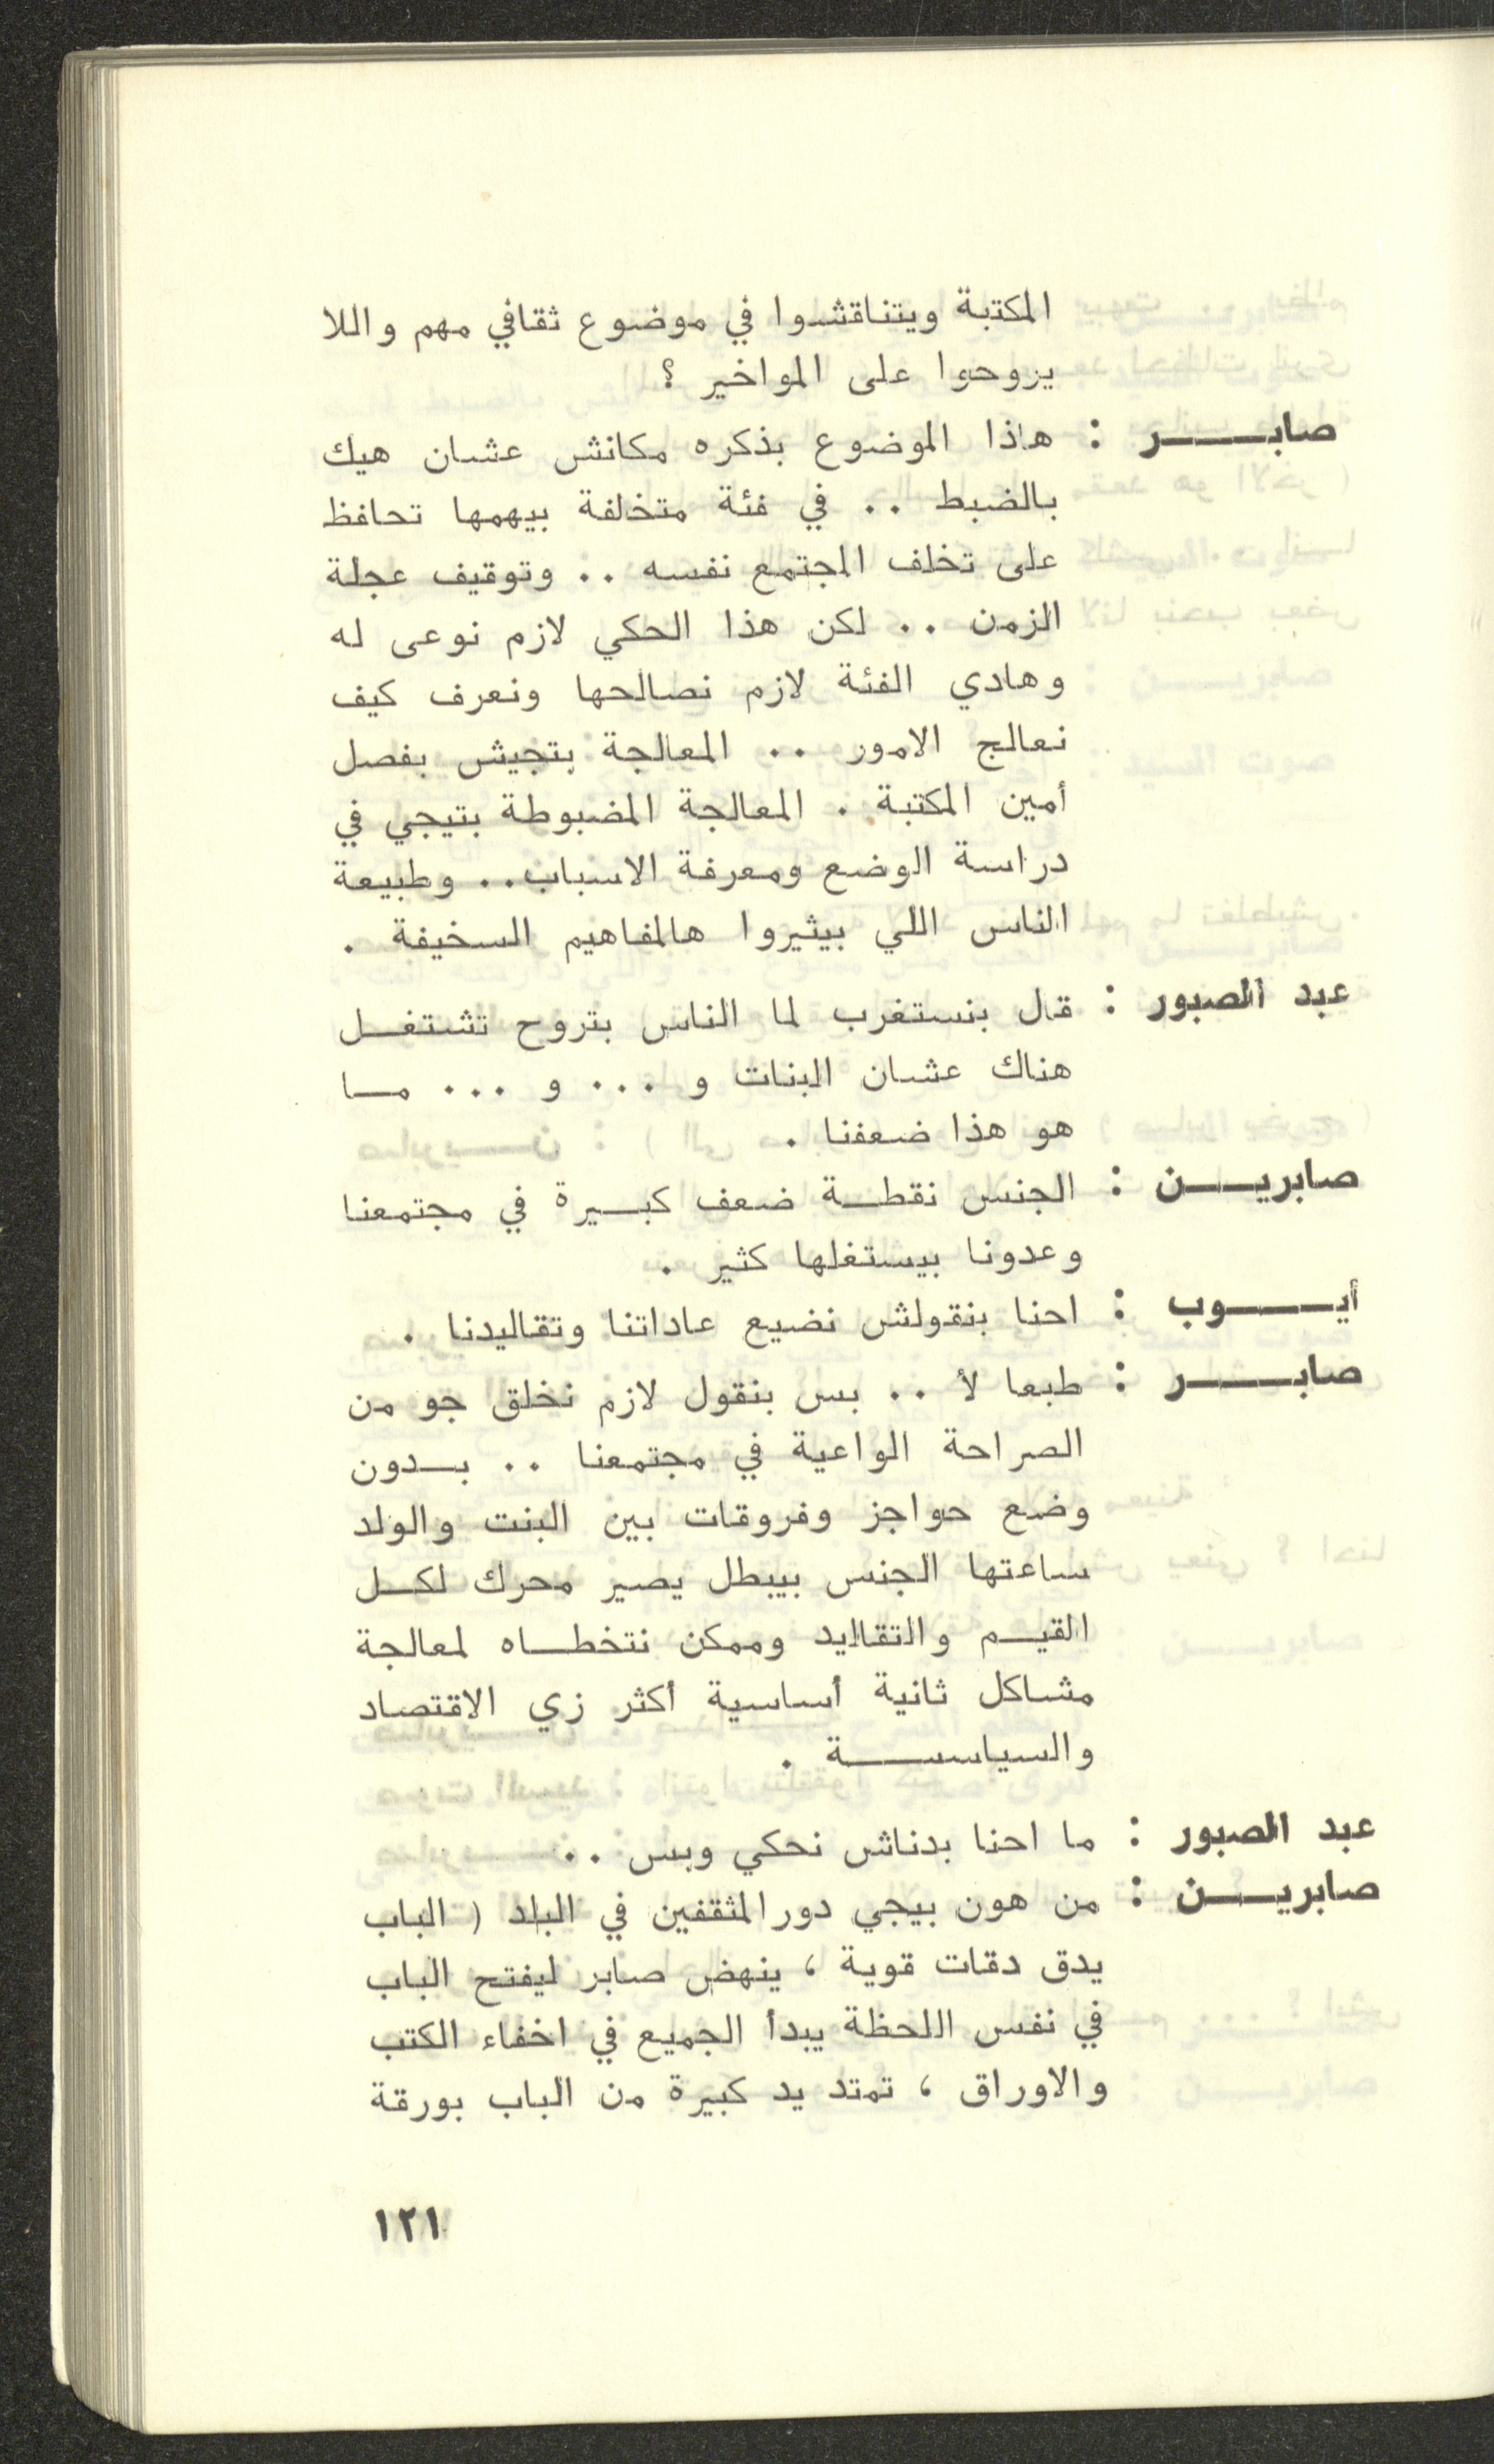 المكتبة ويتناقشوا في موضوع ثقافي مهم واللا
يروحوا على المواخير ؟
صابر : هاذا الموضوع بذكره مكانش عشان هيك
بالضبط .. في فئة متخلفة بيهمها تحافظ
على تخلف المجتمع نفسه .. وتوقيف عجلة
الزمن .. لكن هذا الحكي لازم نوعى له
وهادي الفئة لازم نصالحها ونعرف كيف
نعالج الامور .. المعالجة بتجيش بفصل
أمين المكتبة . المعالجة المضبوطة بتيجي في
دراسة الوضع ومعرفة الاسباب .. وطبيعة
الناس اللي بيثيروا هالمفاهيم السخيفة .
عبد الصبور : قال بنستغرب لما الناس بتروح تشتغل
هناك عشان البنات و ... و ... ما
هو هذا ضعفنا .
صابرين : الجنس نقطة ضعف كبيرة في مجتمعنا
وعدونا بيستغلها كثير .
أيوب : احنا بنقولش نضيع عاداتنا وتقاليدنا .
صابر : طبعا لأ .. بس بنقول لازم نخلق جو من
الصراحة الواعية في مجتمعنا .. بدون
وضع حواجز وفروقات بين البنت والولد
ساعتها الجنس بيبطل يصير محرك لكل
القيم والتقاليد وممكن نتخطاه لمعالجة
مشاكل ثانية أساسية أكثر زي الاقتصاد
والسياسة .
عبد الصبور : ما احنا بدناش نحكي وبس ..
صابرين : من هون بيجي دور المثقفين في البلد ( الباب
يدق دقات قوية ، ينهض صابر ليفتح الباب
في نفس اللحظة يبدأ الجميع في اخفاء الكتب
والاوراق ، تمتد يد كبيرة من الباب بورقة
١٢١